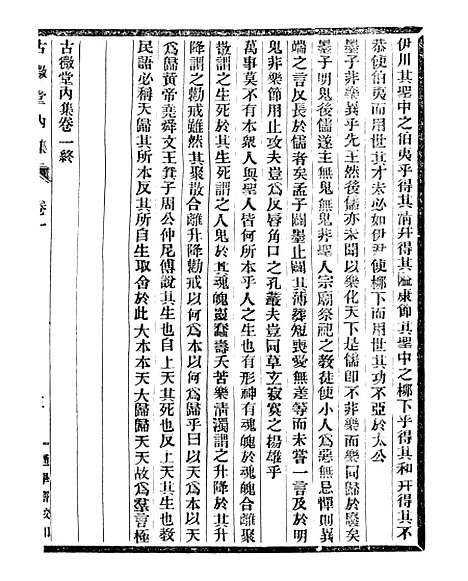 伊川其聖中之伯夷乎得其清幷得其隘康節其聖中之柳下乎得其和幷得其不
恭使伯夷而用世其才未必如伊尹使柳下而用世其功不亞於太公
墨子非樂異乎先王然後儒亦未聞以樂化天下是儒卽不非樂而樂同歸於廢矣
墨子明鬼後儒遂主無鬼無鬼非聖人宗廟祭祀之敎徒使小人爲惡無忌憚則異
端之言反長於儒者矣孟子闢墨止闢其薄葬短喪愛無差等而未嘗一言及於明
鬼非樂節用止攻夫豈爲反脣角口之孔叢夫豈同草玄寂寞之揚雄乎
萬事莫不有其本眾人與聖人皆何所本乎人之生也有形神有魂魄於魂魄合離聚
散謂之生死於其生死謂之人鬼於其魂魄靈蠢壽夭苦樂淸濁謂之升降於其升
降謂之勸戒雖然其聚散合離升降勸戒以何爲本以何爲歸乎曰以天爲本以天
爲歸黃帝堯舜文王箕子周公仲尼傅說其生也自上天其死也反上天其生也敎
民語必稱天歸其所本反其所自生取舍於此大本本天大歸歸天天故爲羣言極
古微堂內集卷一終
古微堂內集
卷一